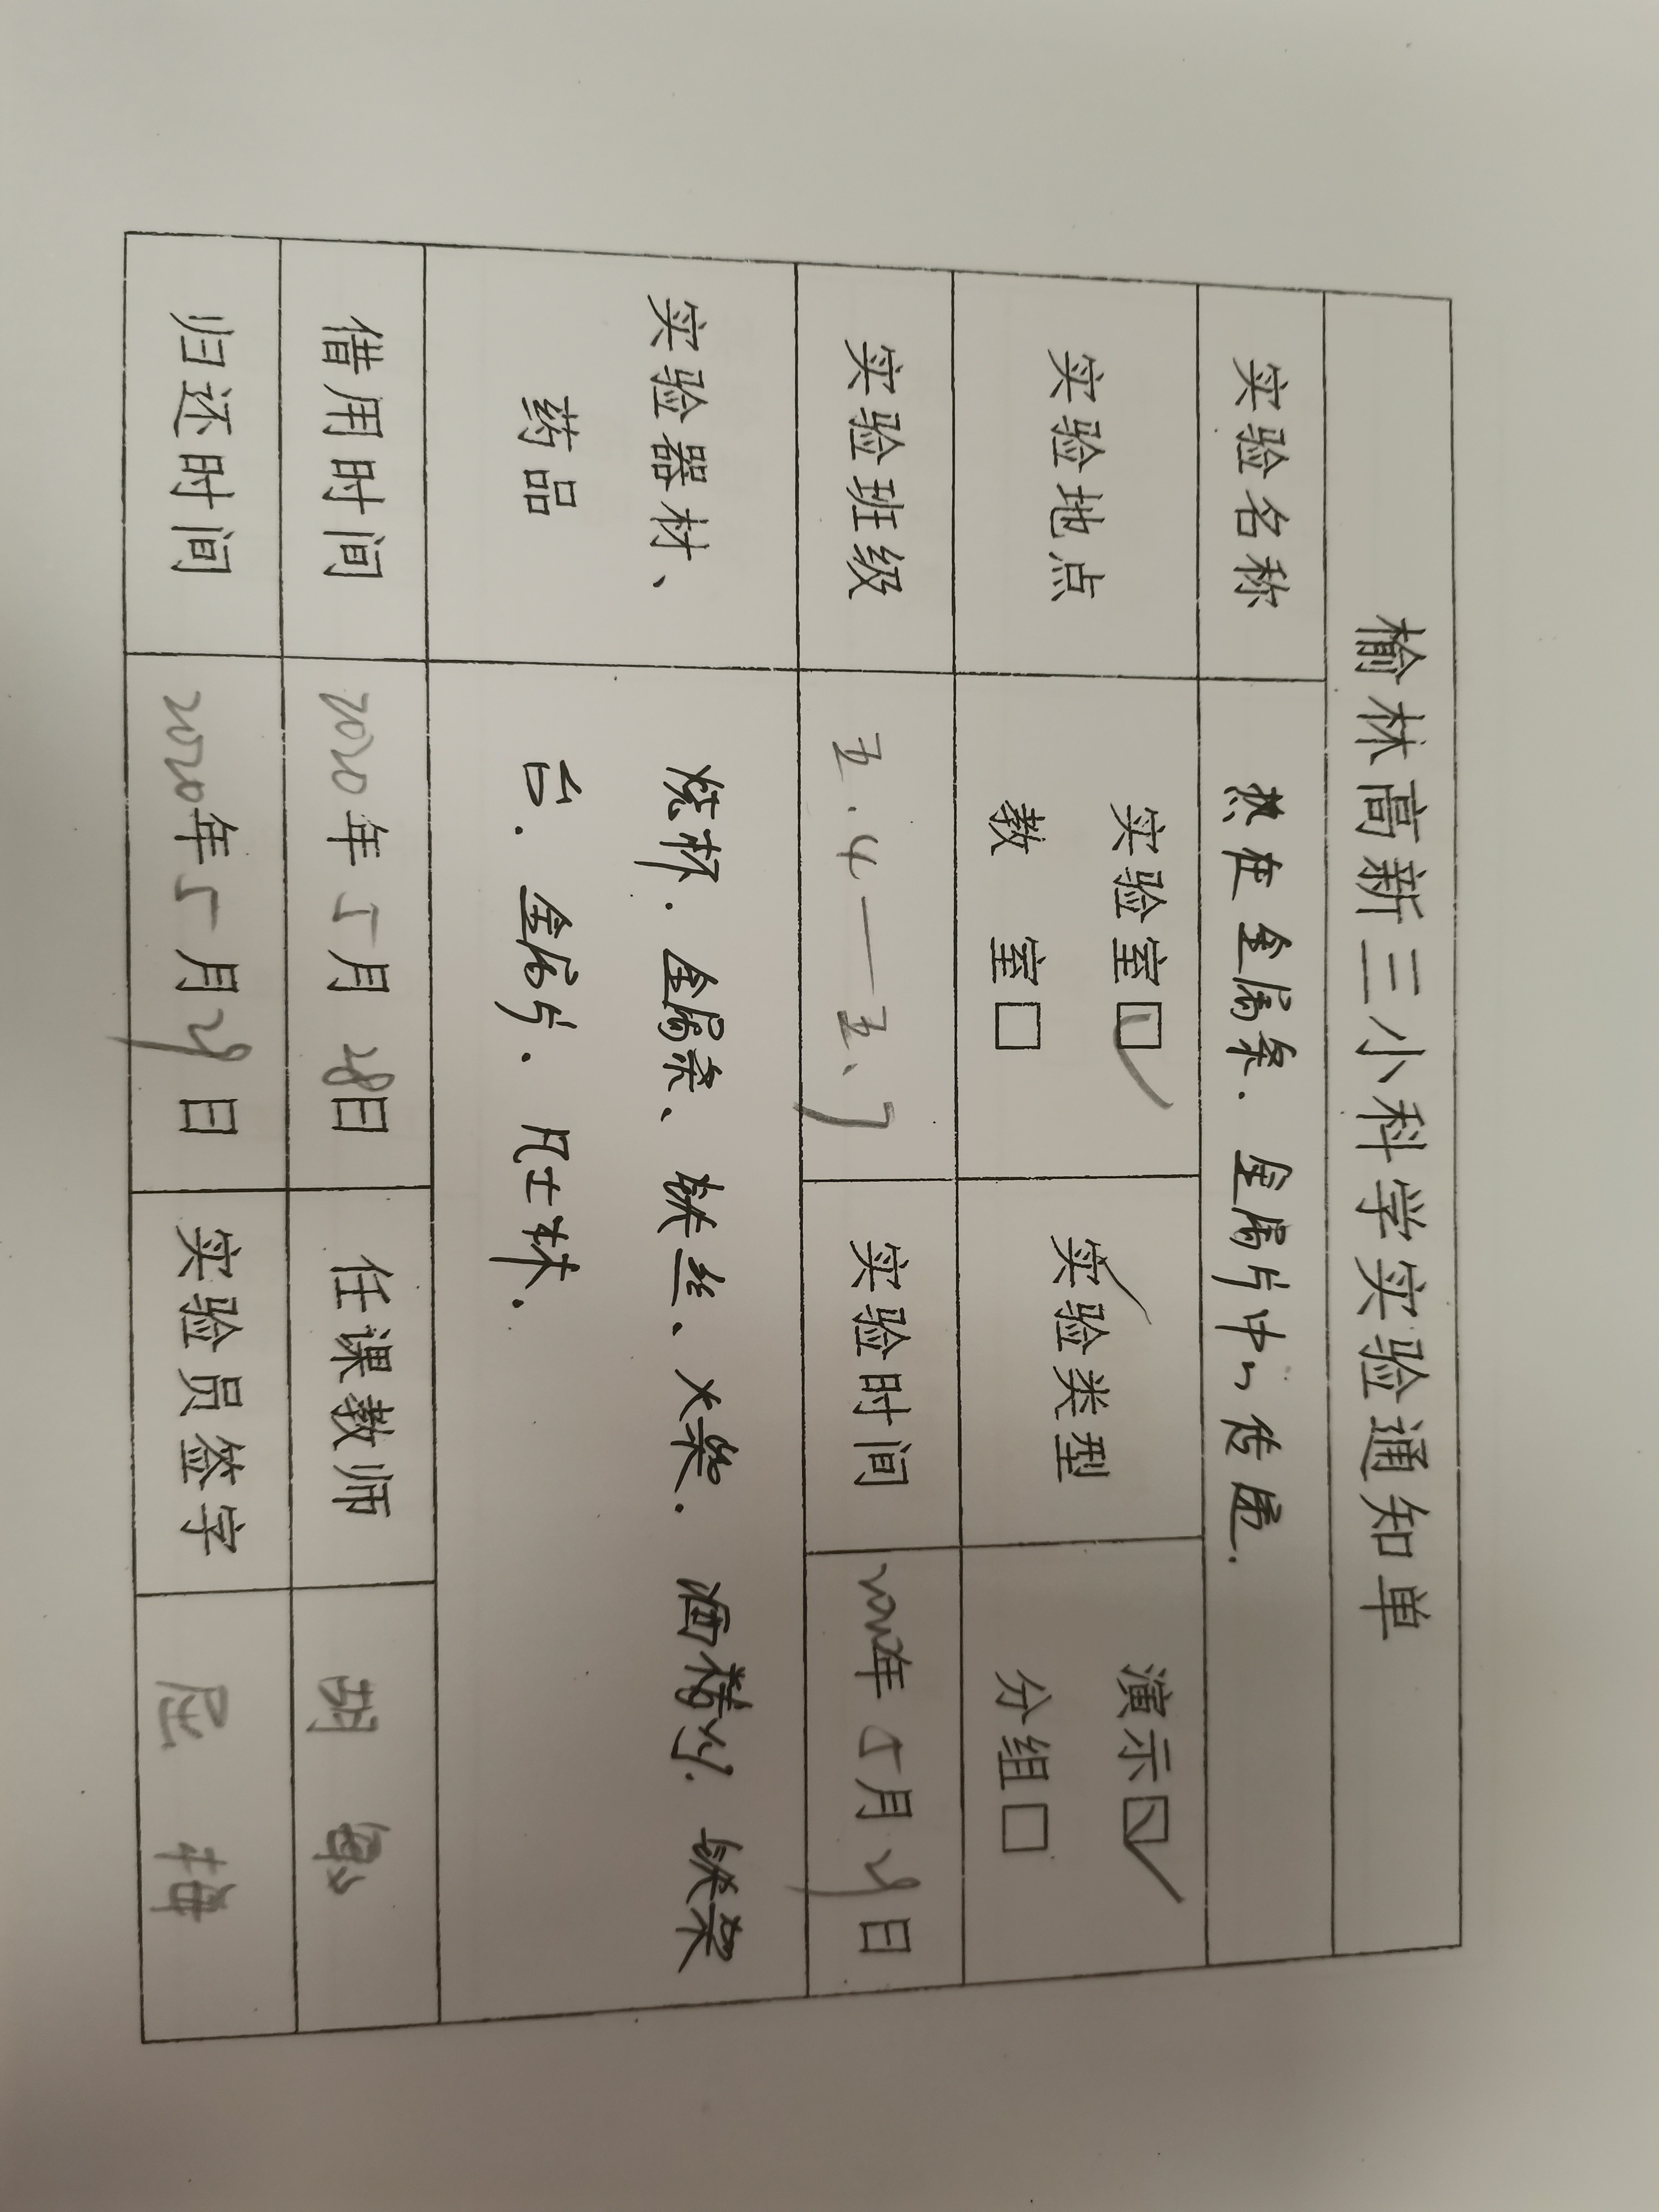 榆林高新三小科学实验通知单
实验名称 热在金属条.金属片中的传递.
实验地点 实验室☑ 教 室☐ 实验类型 演示☑ 分组☐
实验班级 五.4——五、7 实验时间 2020年5月29日
实验器材、药品 烧杯.金属条、铁丝、火柴.酒精灯.铁架
台.金属片.凡士林.
借用时间 2020年5月28日 任课教师 胡
归还时间 2020年5月29日 实验员签字 屈 梅